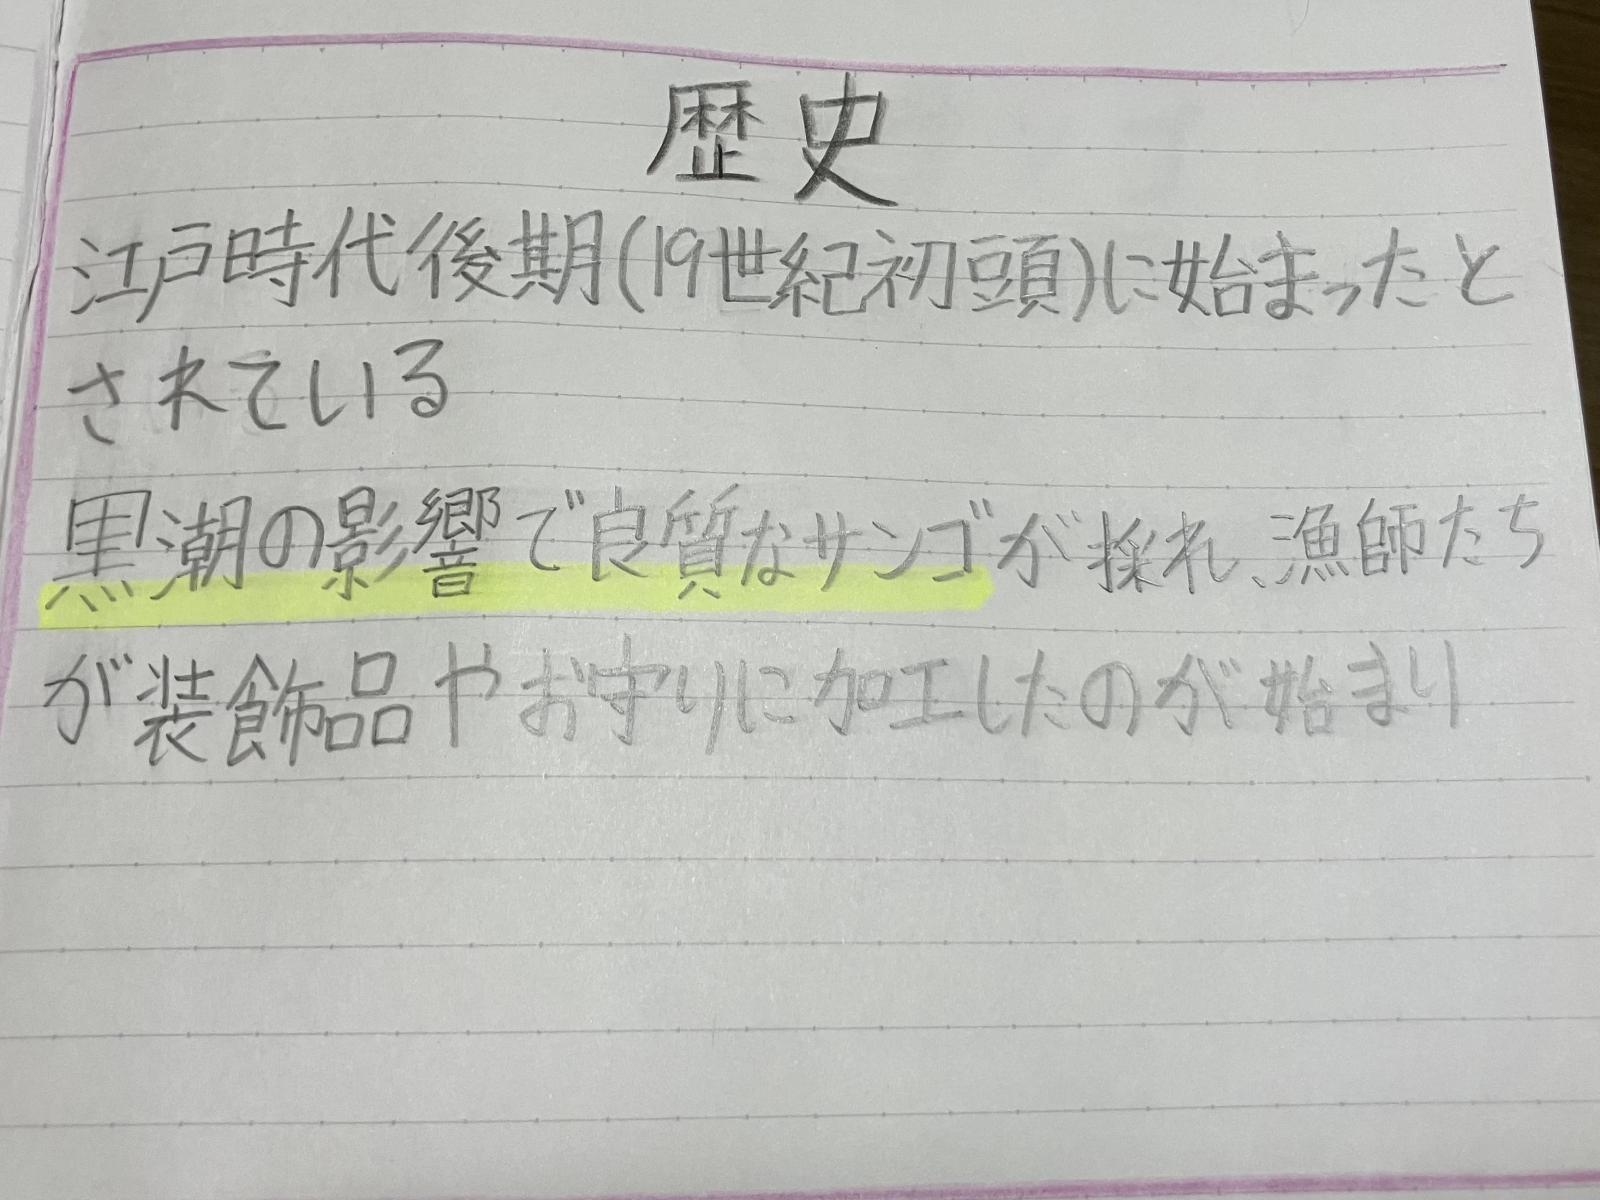 歴史
江戸時代後期(19世紀初頭)に始まったと
されている
黒潮の影響で良質なサンゴが採れ、漁師たち
が装飾品やお守りに加工したのが始まり